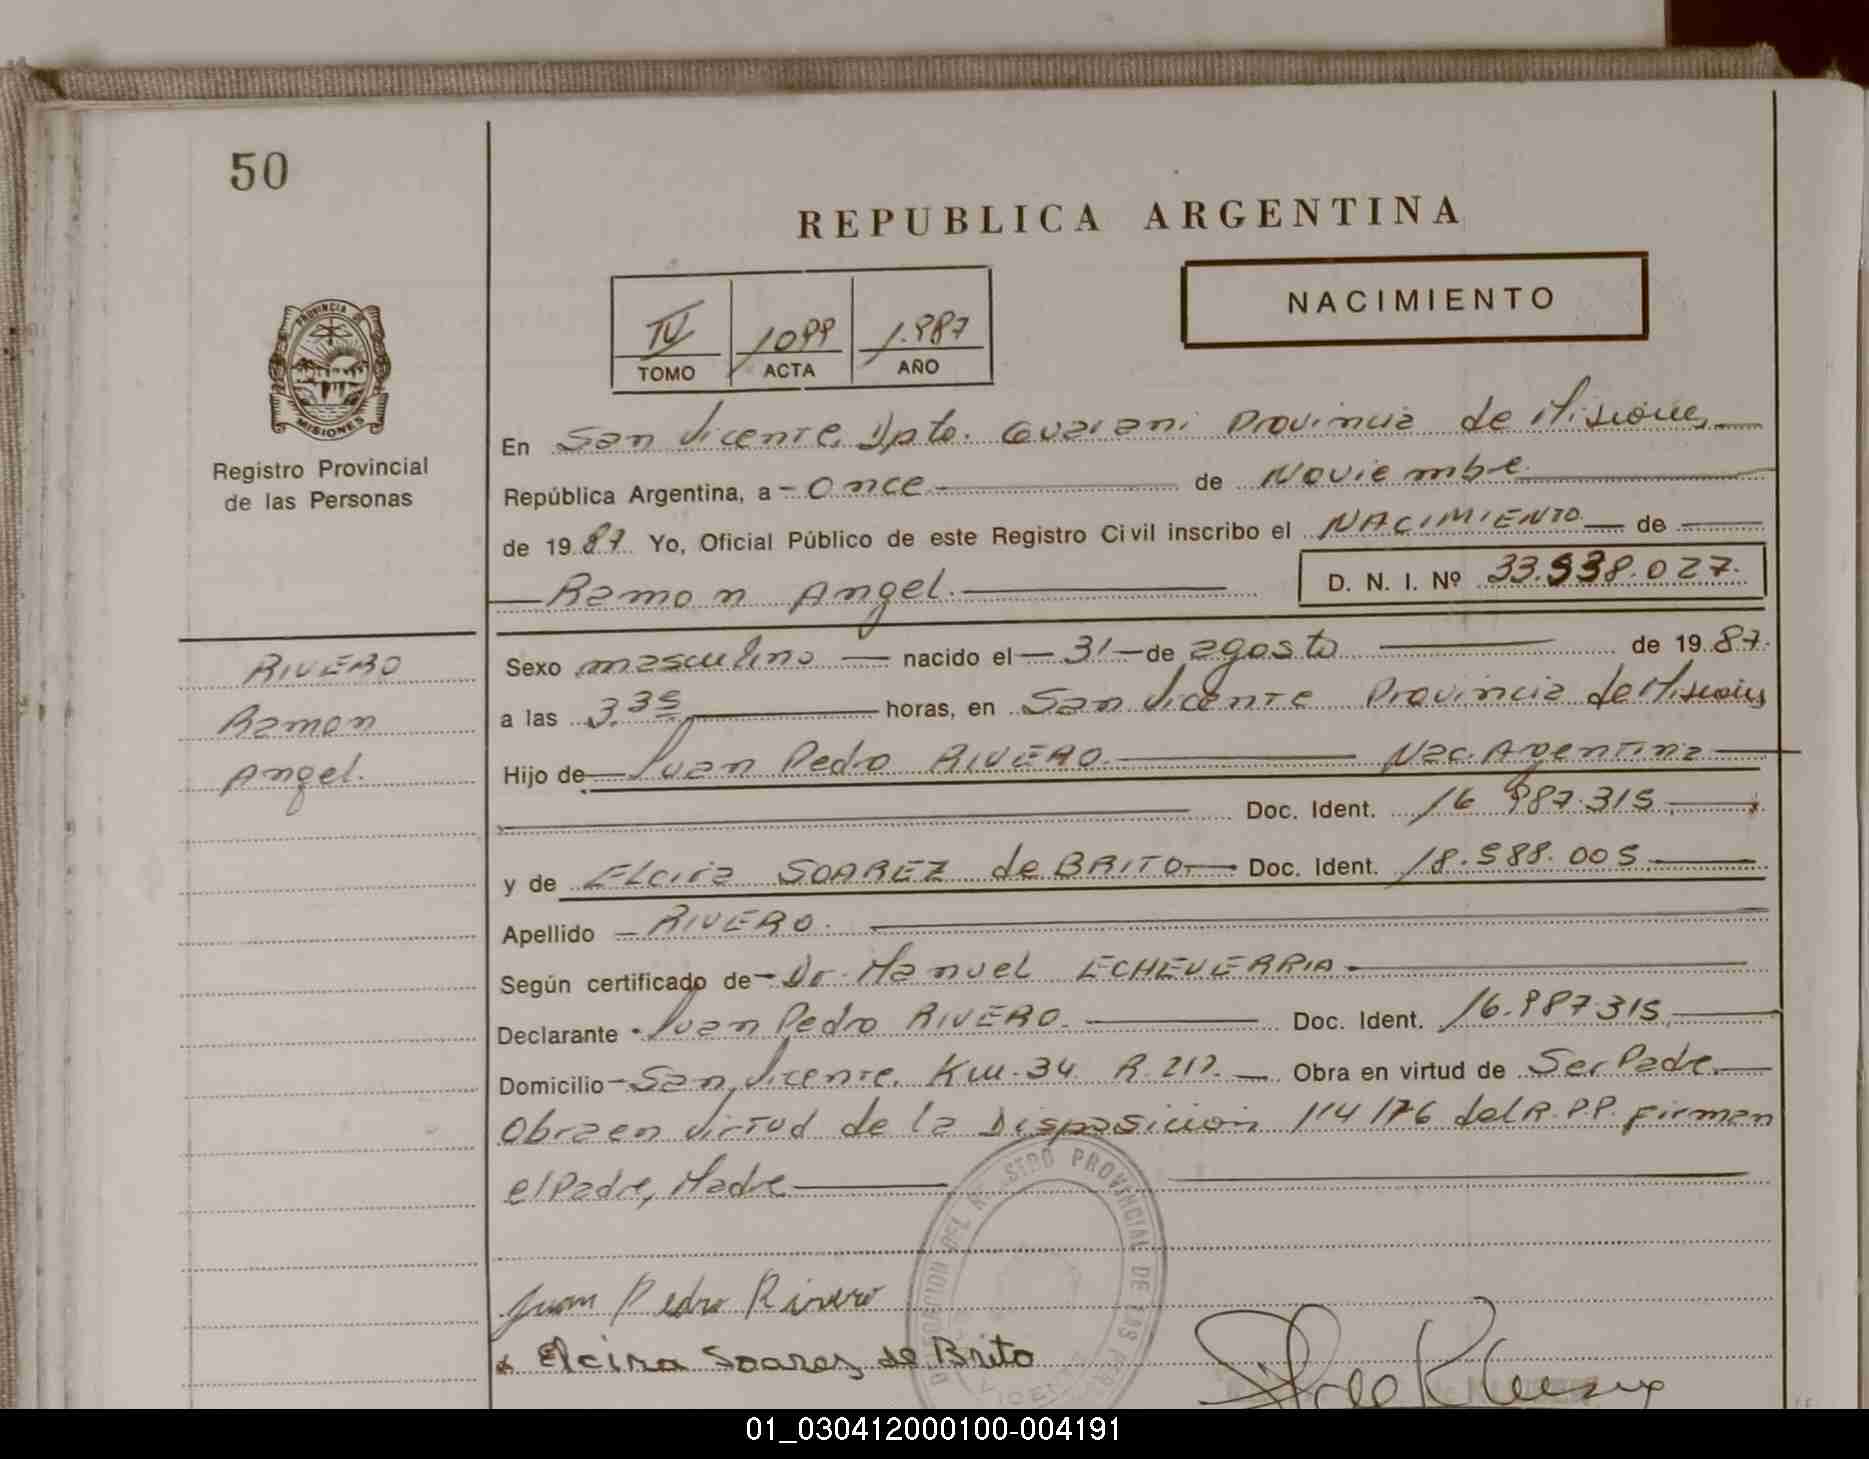 50
REPUBLICA ARGENTINA
IV 1099 1.987
TOMO ACTA AÑO
NACIMIENTO
PROVINCIA DE
MISIONES
Registro Provincial
de las Personas
En San Vicente, Dpto. Guarani Provincia de Misiones
República Argentina, a - Once de Noviembre
de 1987 Yo, Oficial Público de este Registro Civil inscribo el NACIMIENTO de
Ramon Angel. D. N. I. Nº 33.938.027.
RIVERO
Ramon
Angel.
Sexo masculino nacido el - 31 - de agosto de 1987.
a las 3.35 horas, en San Vicente Provincia de Misiones
Hijo de Juan Pedro RIVERO. Nac. Argentina
Doc. Ident. 16.987.315
y de Elcira SOAREZ de BRITO - Doc. Ident. 18.588.005
Apellido - RIVERO.
Según certificado de - Dr. Manuel ECHEVERRIA
Declarante - Juan Pedro RIVERO. Doc. Ident. 16.987.315
Domicilio - San Vicente, Km. 34 R. 212. Obra en virtud de Ser Padre
Obra en virtud de la Disposicion 114/76 del R.P.P. firman
el Padre, Madre
Juan Pedro Rivero
Elcira Soares de Brito
PROVINCIAL DE LAS
01_030412000100-004191